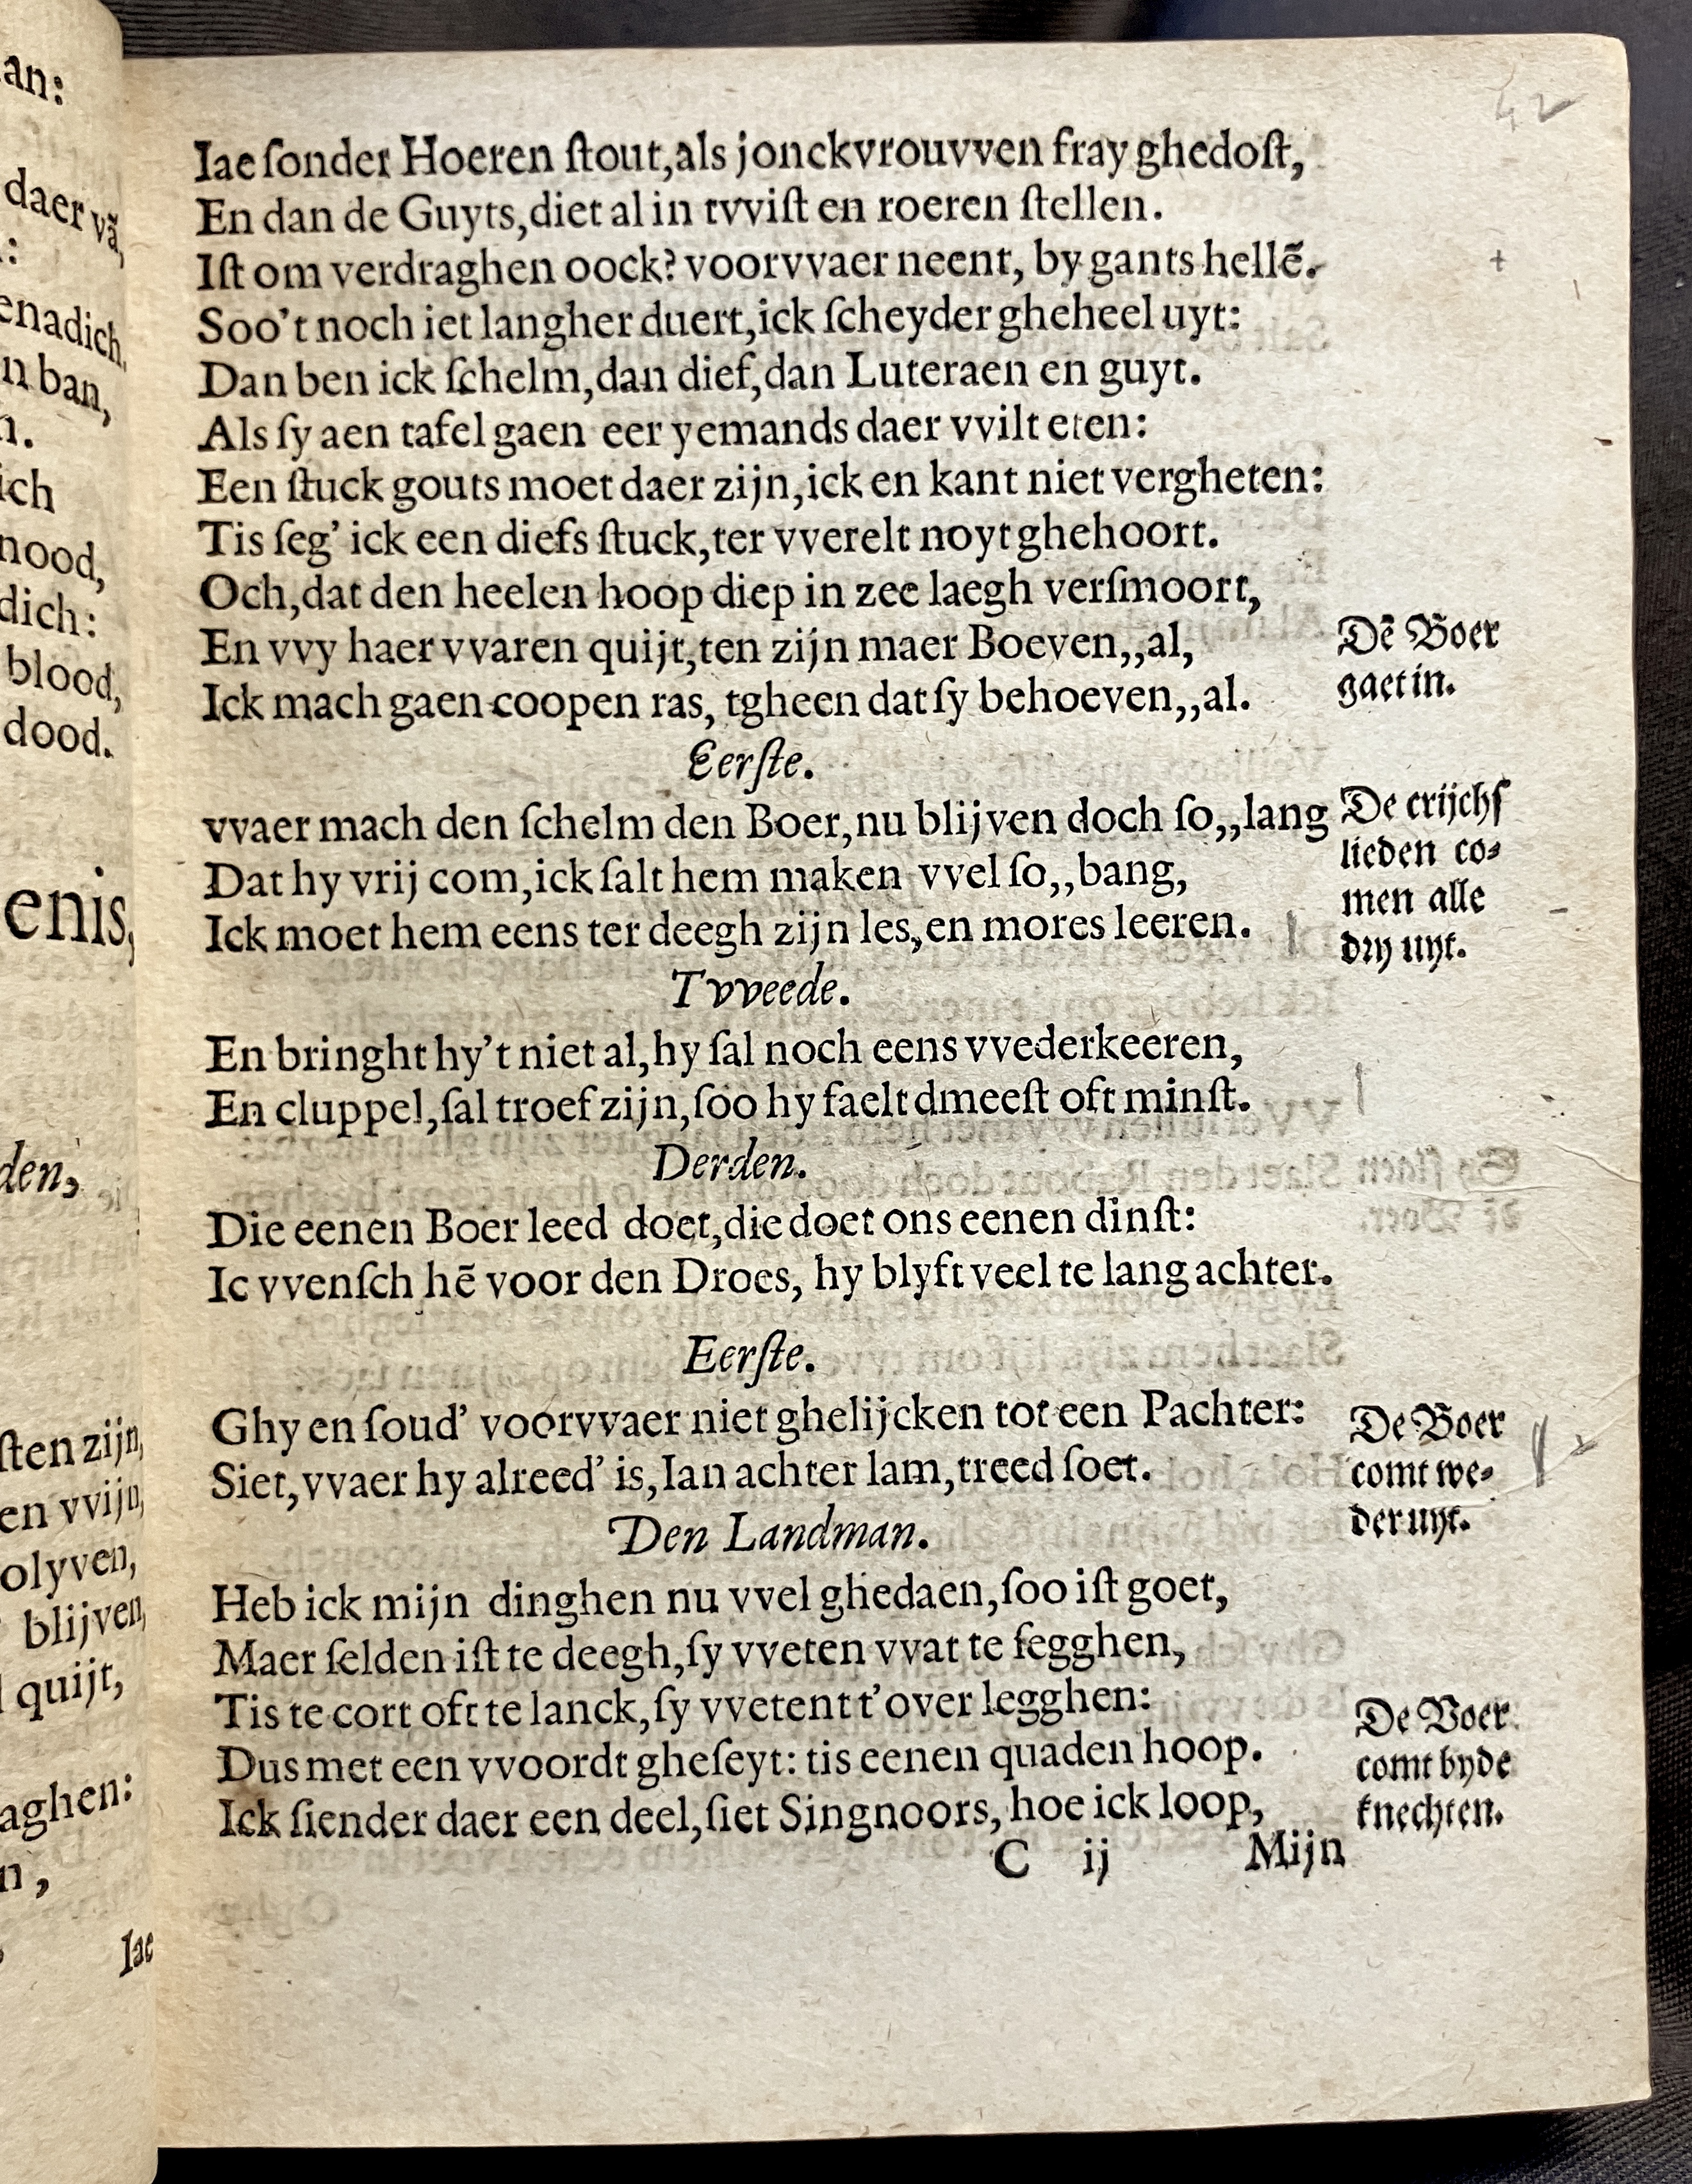 an:
daer vã,
:
enadich,
n ban,
n.
ich
nood,
dich:
blood,
dood.
enis,
den,
ſten zijn,
en vvijn,
olyven,
blijven,
quijt,
aghen:
n,
Iae
42
Iae ſonder Hoeren ſtout, als jonckvrouvven fray ghedoſt,
En dan de Guyts, diet al in tvviſt en roeren ſtellen.
Iſt om verdraghen oock? voorvvaer neent, by gants hellẽ.
Soo't noch iet langher duert, ick ſcheyder gheheel uyt:
Dan ben ick ſchelm, dan dief, dan Luteraen en guyt.
Als ſy aen tafel gaen eer yemands daer vvilt eten:
Een ſtuck gouts moet daer zijn, ick en kant niet vergheten:
Tis ſeg' ick een diefs ſtuck, ter vverelt noyt ghehoort.
Och, dat den heelen hoop diep in zee laegh verſmoort,
En vvy haer vvaren quijt, ten zijn maer Boeven,,al,
Ick mach gaen coopen ras, tgheen dat ſy behoeven,,al.
Dẽ Boer
gaet in.
Eerſte.
vvaer mach den ſchelm den Boer, nu blijven doch ſo,,lang
Dat hy vrij com, ick ſalt hem maken vvel ſo,,bang,
Ick moet hem eens ter deegh zijn les, en mores leeren.
De crijchſ
lieden co⸗
men alle
dry uyt.
Tvveede.
En bringht hy't niet al, hy ſal noch eens vvederkeeren,
En cluppel, ſal troef zijn, ſoo hy faelt dmeeſt oft minſt.
Derden.
Die eenen Boer leed doet, die doet ons eenen dinſt:
Ic vvenſch hẽ voor den Droes, hy blyft veel te lang achter.
Eerſte.
Ghy en ſoud' voorvvaer niet ghelijcken tot een Pachter:
Siet, vvaer hy alreed' is, Ian achter lam, treed ſoet.
De Boer
comt we⸗
der uyt.
Den Landman.
Heb ick mijn dinghen nu vvel ghedaen, ſoo iſt goet,
Maer ſelden iſt te deegh, ſy vveten vvat te ſegghen,
Tis te cort oft te lanck, ſy vvetent t'over legghen:
Dus met een vvoordt gheſeyt: tis eenen quaden hoop.
Ick ſiender daer een deel, ſiet Singnoors, hoe ick loop,
De Boer
comt by de
knechten.
C ij Mijn